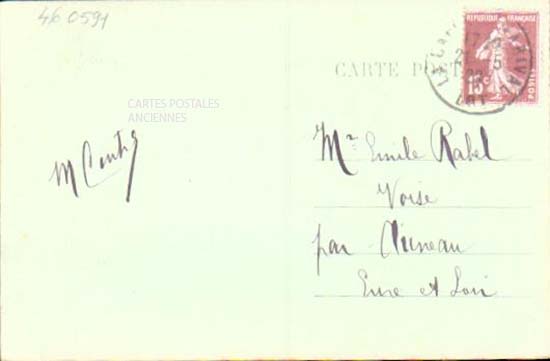 46 0591
RÉPUBLIQUE FRANÇAISE
15c
POSTES
CARTE POST
CARTES POSTALES
ANCIENNES
Mr Emile Rabel
Voise
par Auneau
Eure et Loir
LOT